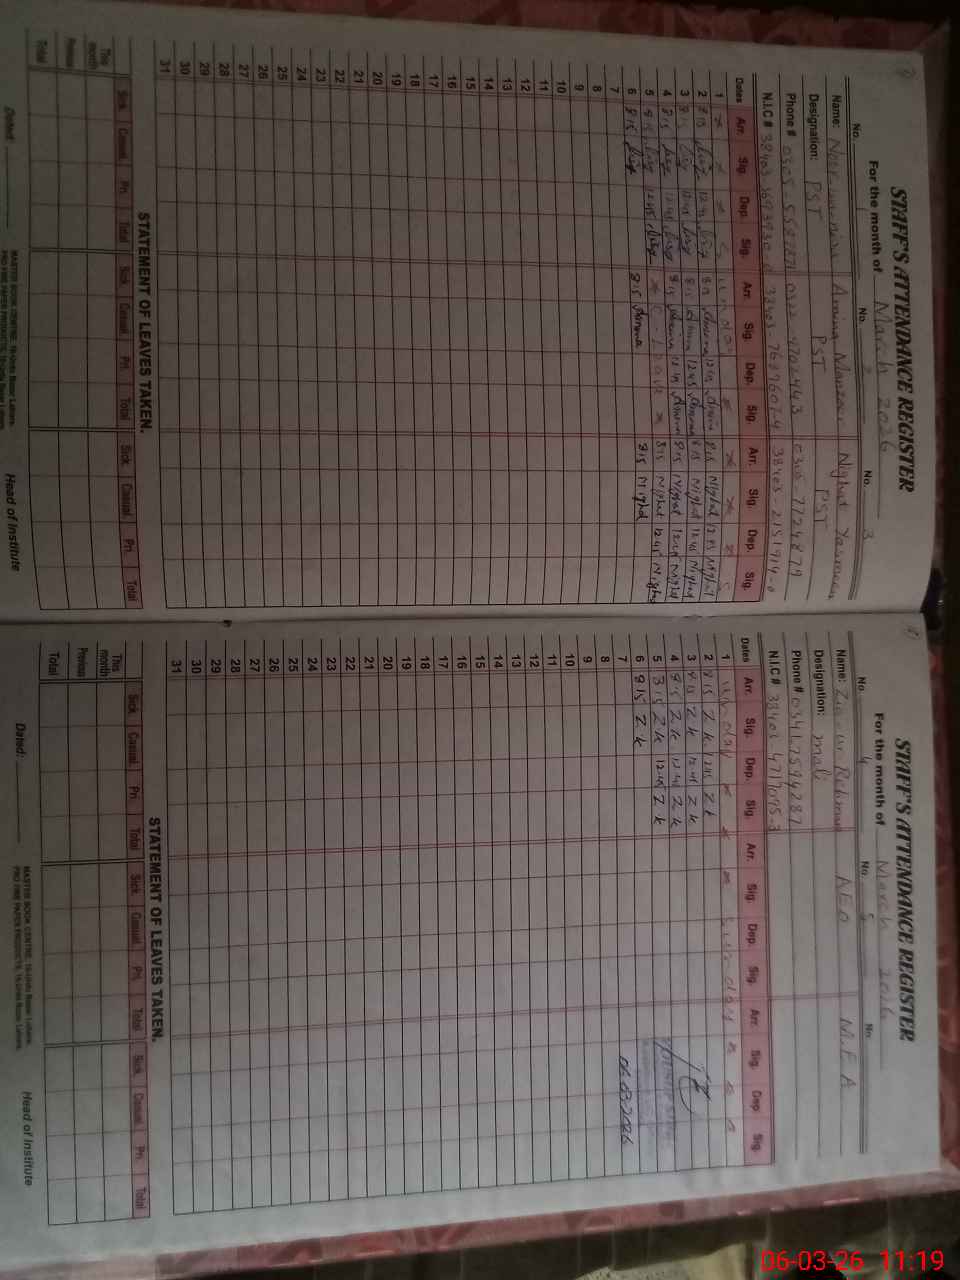 STAFF'S ATTENDANCE REGISTER
For the month of March 2026
No. No. 2 No. 3
Name: Amina Manzoor Nighat Yasmeen
Designation: PST PST PST
Phone # 0306-7724879
N.I.C #
Dates Arr. Sig. Dep. Sig. Arr. Sig. Dep. Sig. Arr. Sig. Dep. Sig.
1
2 8:15 12:45 8:15 Amina 12:45 Amina 8:15 Nighat 12:45 Nighat
3 8:15 12:45 8:15 Amina 12:45 Amina 8:15 Nighat 12:45 Nighat
4 8:15 12:45 8:15 Amina 12:45 Amina 8:15 Nighat 12:45 Nighat
5 8:15 12:45 C-Leave 8:15 Nighat 12:45 Nighat
6 8:15 8:15 Amina 8:15 Nighat
7
8
9
10
11
12
13
14
15
16
17
18
19
20
21
22
23
24
25
26
27
28
29
30
31
STATEMENT OF LEAVES TAKEN.
Sick Casual Pri. Total Sick Casual Pri Total Sick Casual Pri Total
This month
Previous
Total
Dated:
MASTER BOOK CENTRE, 16-Urdu Bazar Lahore.
Head of Institute
STAFF'S ATTENDANCE REGISTER
For the month of March 2026
No. 4 No. 5 No.
Name: Zia ur Rehman AEO M.E.A
Designation: mali
Phone #
N.I.C #
Dates Arr. Sig. Dep. Sig. Arr. Sig. Dep. Sig. Arr. Sig. Dep. Sig.
1 Sunday Sunday
2 8:15 Z k 12:45 Z k
3 8:15 Z k 12:45 Z k
4 8:15 Z k 12:45 Z k
5 8:15 Z k 12:45 Z k
6 8:15 Z k
7 06-03-2026
8
9
10
11
12
13
14
15
16
17
18
19
20
21
22
23
24
25
26
27
28
29
30
31
STATEMENT OF LEAVES TAKEN.
Sick Casual Pri Total Sick Casual Pri Total Sick Casual Pri. Total
This month
Previous
Total
Dated:
MASTER BOOK CENTRE, 16-Urdu Bazar Lahore.
Head of Institute
06-03-26 11:19